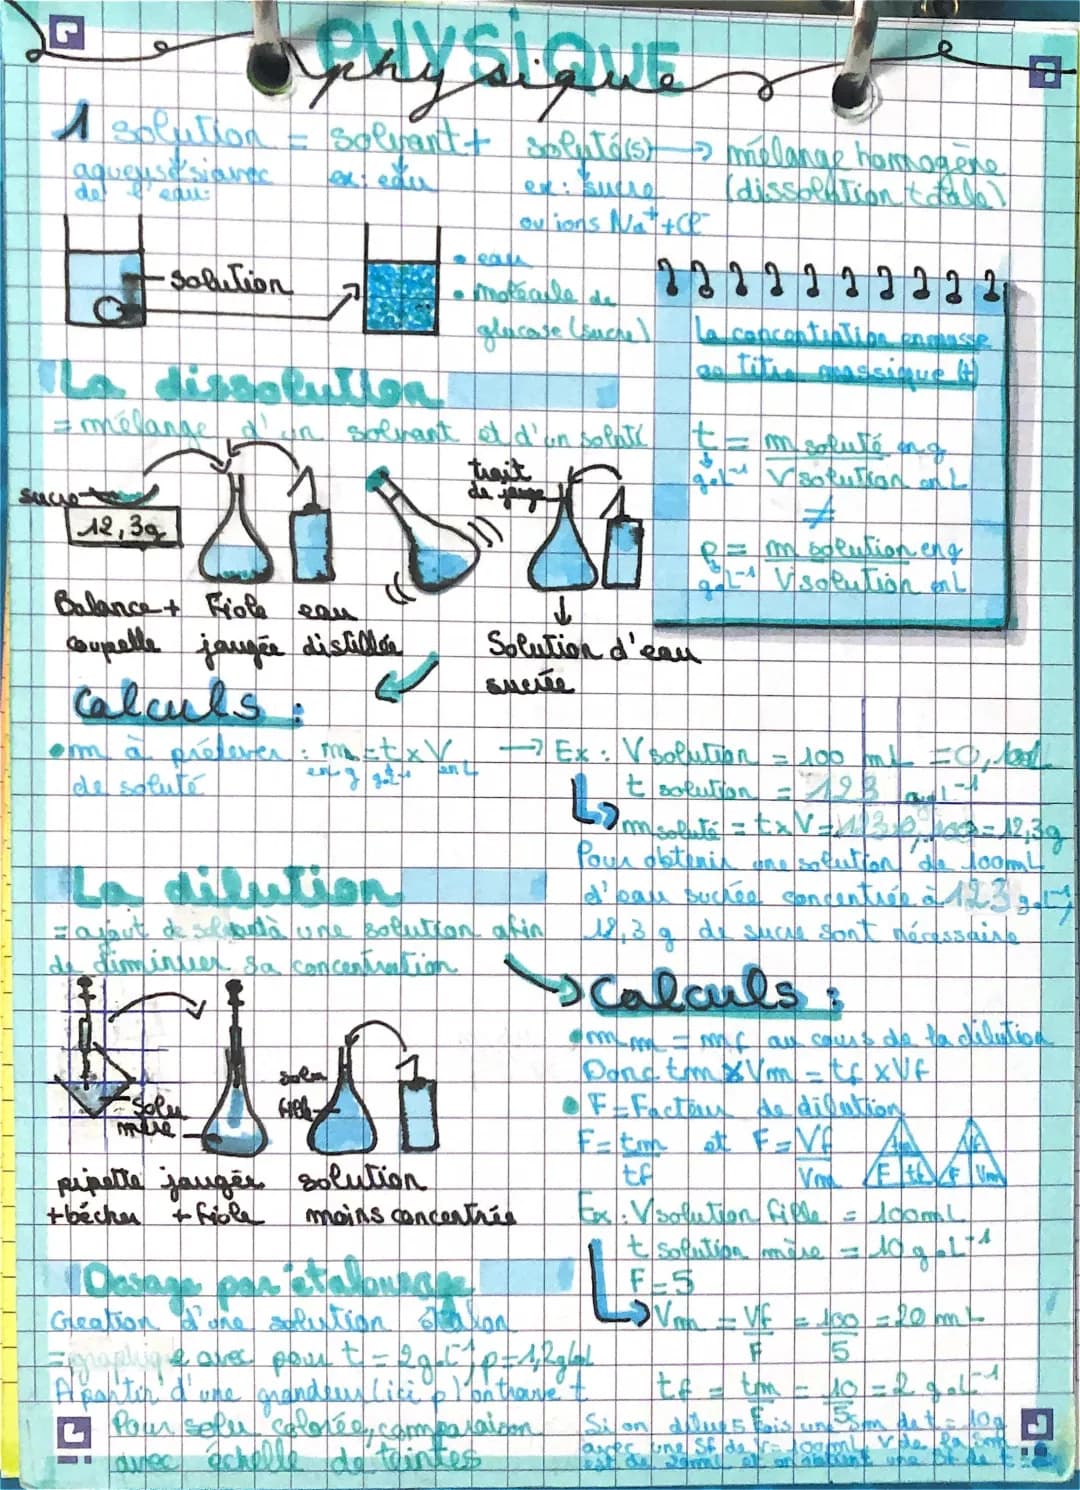 PHYSIQUE
physique
1 solution = solvant + soluté(s) → mélange homogène
aqueuse si avec ex: eau ex: sucre (dissolution totale)
de l'eau ou ions Na⁺+Cl⁻
solution
• eau
• molécule de
glucose (sucre)
La concentration en masse
ou titre massique (t)
t = m soluté en g
g.L⁻¹ V solution en L
≠
ρ = m solution en g
g.L⁻¹ V solution en L
La dissolution
= mélange d'un solvant et d'un soluté
sucre
12,3g
trait
de jauge
Balance + Fiole eau
coupelle jaugée distillée
Solution d'eau
sucrée
Calculs :
• m à prélever : m = t x V
de soluté en g g.L⁻¹ en L
→ Ex : V solution = 100 mL = 0,100L
t solution = 123 g.L⁻¹
m soluté = t x V = 123 x 0,100 = 12,3g
Pour obtenir une solution de 100mL
d'eau sucrée concentrée à 123 g.L⁻¹,
12,3 g de sucre sont nécessaire
La dilution
= ajout de solvant à une solution afin
de diminuer sa concentration
Solu
mère
solu
fille
pipette jaugée solution
+ bécher + fiole moins concentrée
Calculs :
• mm = mf au cours de la dilution
Donc tm x Vm = tf x Vf
• F = Facteur de dilution
F = tm et F = Vf
tf Vm
tm
F tf
Vf
F Vm
Ex : V solution fille = 100mL
t solution mère = 10 g.L⁻¹
F = 5
Vm = Vf = 100 = 20 mL
F 5
tf = tm = 10 = 2 g.L⁻¹
F 5
Si on dilue 5 fois une Sm de t = 10g
avec une Sf de V = 100mL, V de la Sm
est de 20mL et on obtient une Sf de t =
Dosage par étalonnage
Creation d'une solution étalon
= graphique avec pour t = 2g.L⁻¹, ρ = 1,2g/mL
A partir d'une grandeur (ici ρ) on trouve t
Pour solu colorée, comparaison
avec échelle de teintes